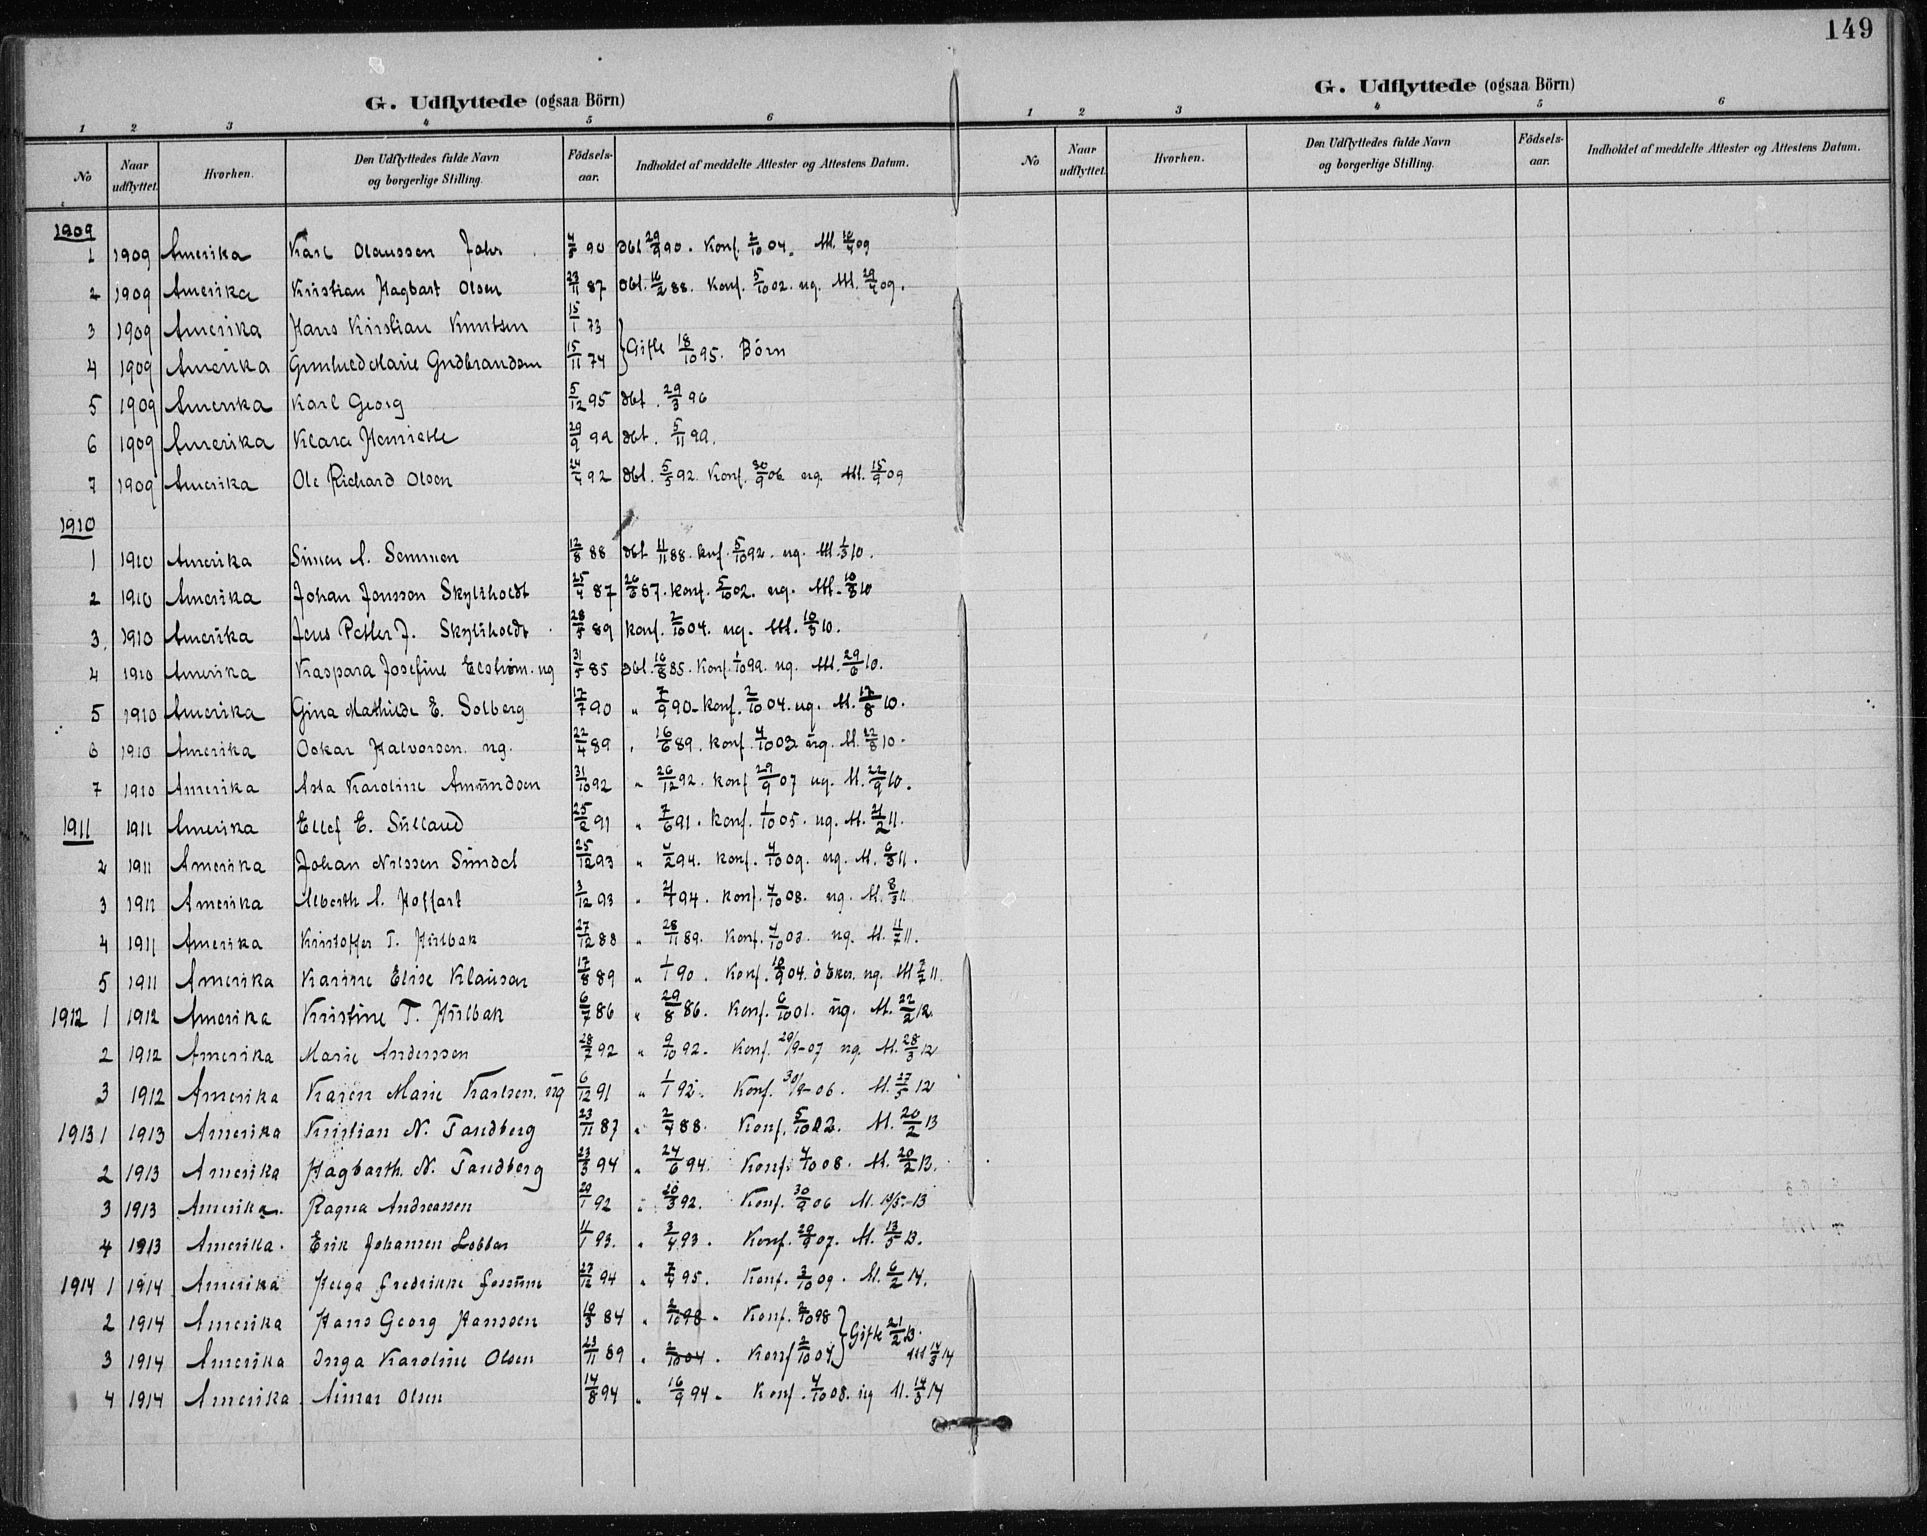 149
G. Udflyttede (ogsaa Börn)
1 2 3 4 5 6
No Naar udflyttet. Hvorhen. Den Udflyttedes fulde Navn og borgerlige Stilling. Fødsels-aar. Indholdet af meddelte Attester og Attestens Datum.
1909
1 1909 Amerika Karl Olaussen 90 Döbt 29/ 90. Konf. 2/10 04. Att. 09
2 1909 Amerika Kristian Hagbart Olsen 23/11 87 Döbt. 16/2 88. Konf. 5/10 02. ug. Att. 29/4 09.
3 1909 Amerika Hans Kristian Knutsen 15/1 73
4 1909 Amerika Gunhild Marie Gudbrandsen 15/11 74 } Gifte 18/10 95. Börn
5 1909 Amerika Karl Georg 5/12 95 döbt. 29/3 96
6 1909 Amerika Klara Henriette 29/9 99 döbt. 5/11 99.
7 1909 Amerika Ole Richard Olsen 24/4 92 döbt. 5/5 92. Konf. 30/9 06 ug. Att. 15/9 09
1910
1 1910 Amerika Simen A. 12/8 88 döbt 11/11 88. konf. 5/10 92. ug. Att. 1/3 10.
2 1910 Amerika Johan Jonsson 25/4 87 26/ 87. konf. 5/10 02. ug. Att. 10
3. 1910 Amerika Jens Petter J. 28/5 89 konf. 2/10 04. ug. Att. 10/3 10.
4 1910 Amerika Kaspara Josefine Elström. ug 31/5 85 Döbt. 16/8 85. Konf. 1/10 99. ug. Att. 29/6 10.
5 1910 Amerika Gina Mathilde E. Solberg 17/7 90 " 7/9 90. konf. 2/10 04. ug. At. 17/8 10.
6 1910 Amerika Oskar Halvorsen. ug. 22/4 89 " 16/6 89. konf. 4/10 03 ug. At. 22/8 10.
7 1910 Amerika Asta Karoline Amundsen 31/10 92 " 26/12 92. konf 29/9 07 ug. At. 22/9 10.
1911 1911 Amerika Ellef E. 25/2 91 " 7/6 91. konf. 1/10 05. ug. At. 21/2 11.
2 1911 Amerika Johan Nilssen 25/12 93 " 4/2 94. konf. 4/10 09. ug. At. 6/3 11.
3 1911 Amerika Alberth A. Hoffart 3/12 93 " 94. konf. 4/10 08. ug. At. 8/3 11.
4 1911 Amerika Kristoffer T. Hulbak 27/12 88 " 28/11 89. Konf. 4/10 03. ug. At. 11/7 11.
5 1911 Amerika Karine Elise Klausen 17/8 89 " 1/1 90. Konf. 04. ug. At 7/7 11.
1912 1 1912 Amerika Kristine T. Hulbak 6/7 86 " 29/8 86. Konf. 6/10 01. ug. At. 22/2 12.
2 1912 Amerika Marie Anderssen 28/7 92 " 9/10 92. Konf. 29/9-07 ug. At. 28/3 12
3 1912 Amerika Karen Marie Karlsen. ug 6/12 91 " 1/1 92. Konf. 30/9-06. At. 27/5 12
1913 1 1913 Amerika Kristian N. Tandberg 23/11 87 " 2/4 88. Konf. 5/10 02. At. 20/2 13
2 1913 Amerika Hagbarth N. Tandberg 23/3 94 " 24/6 94. Konf. 4/10 08. At. 20/2 13.
3 1913 Amerika. Ragna Andreassen 20/1 92 " 20/3 92. Konf. 30/9 06 At. 10/5-13
4 1913 Amerika. Erik Johansen 11/1 93. " 3/4 93. Konf. 29/9 07. At. 13/5 13.
1914 1 1914 Amerika Helga Fredrikke 27/12 94 " 7/4 95. Konf. 3/10 09. At. 6/2 14.
2 1914 Amerika Hans Georg Hanssen 84 " 2/10 98. Konf. 2/10 98
3 1914 Amerika Inga Karoline Olsen 23/11 89 " 2/10 04. Konf 2/10 04 } Gifte 21/2 13. Att 14/3 14
4 1914 Amerika. Olsen 14/8 94 " 16/9 94. Konf. 4/10 08. ug At. 14/3 14
G. Udflyttede (ogsaa Börn)
1 2 3 4 5 6
No Naar udflyttet. Hvorhen. Den Udflyttedes fulde Navn og borgerlige Stilling. Fødsels-aar. Indholdet af meddelte Attester og Attestens Datum.